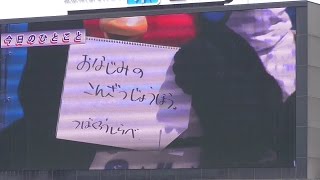 今日のひとこと
おなじみの
こんざつじょうほう。
つばくろうしらべ